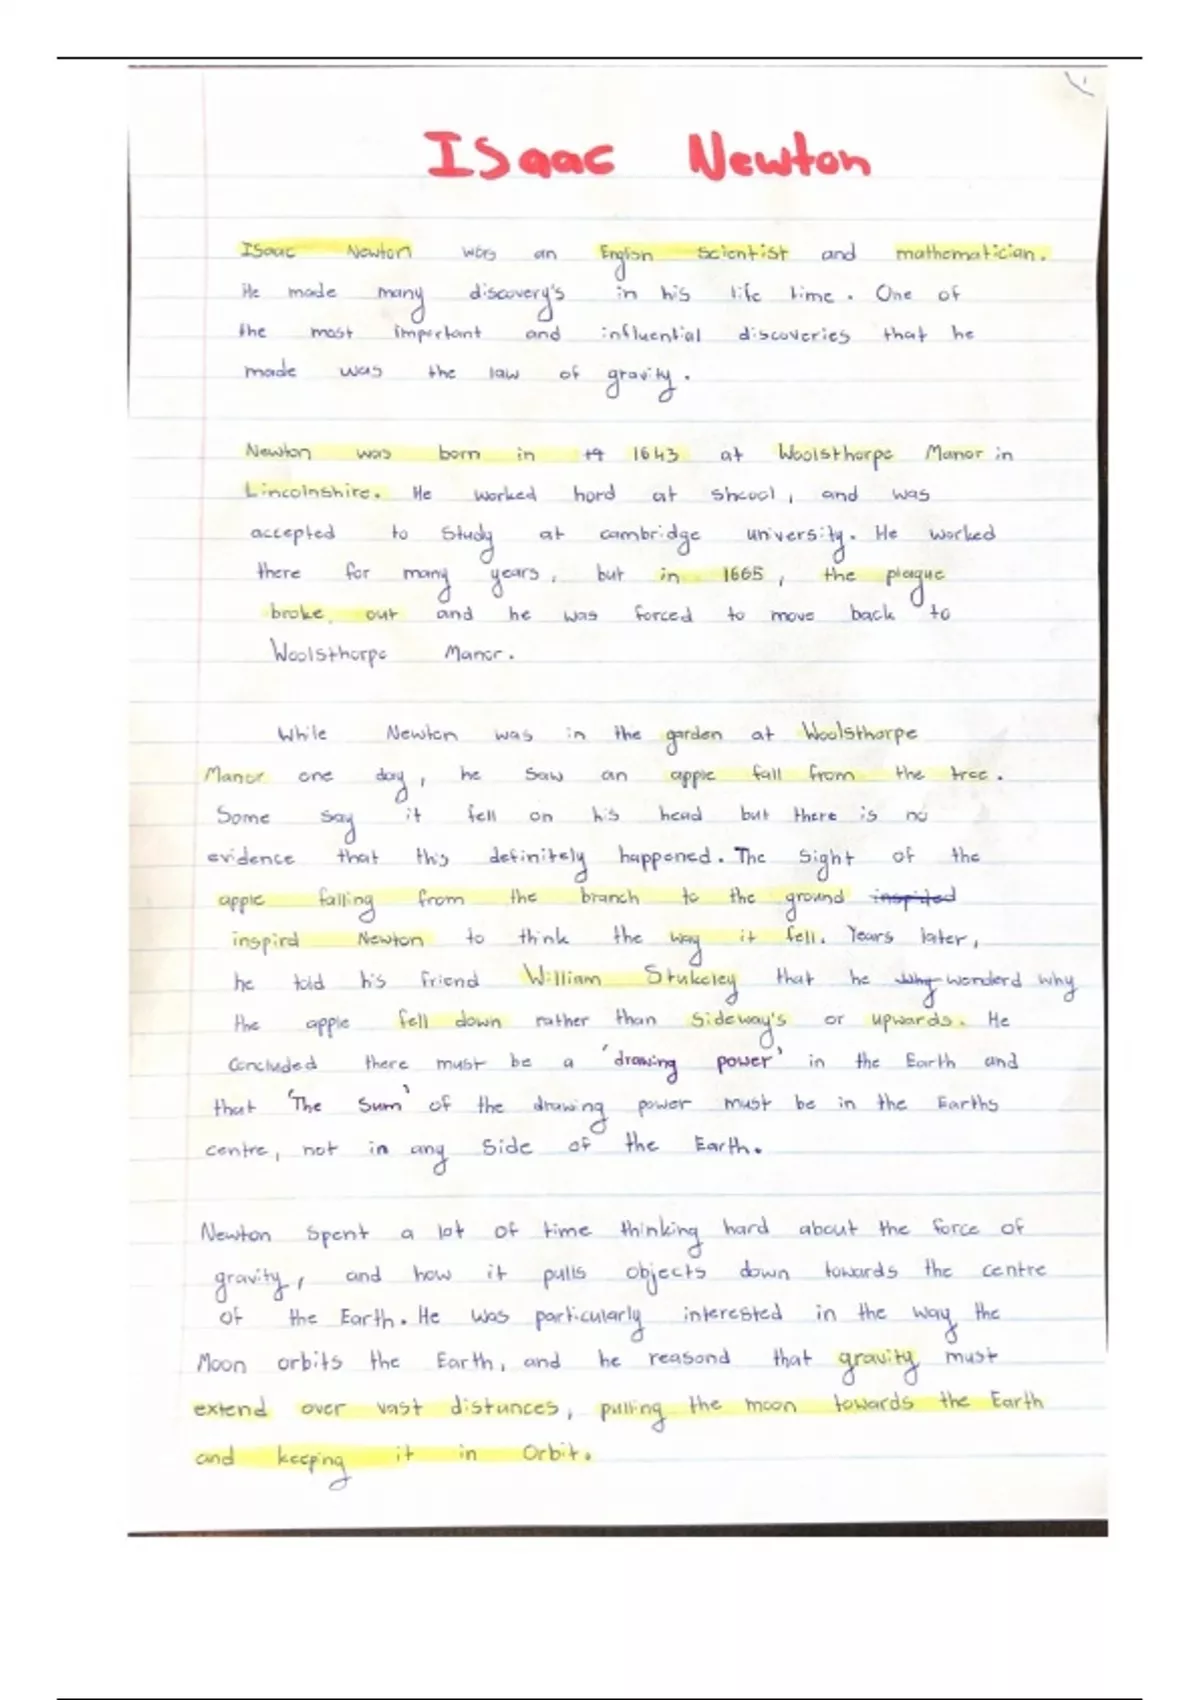 Isaac Newton
Isaac Newton was an English Scientist and mathematician.
He made many discovery's in his life time. One of
the most important and influential discoveries that he
made was the law of gravity.
Newton was born in 1643 at Woolsthorpe Manor in
Lincolnshire. He worked hard at shcool, and was
accepted to study at cambridge university. He worked
there for many years, but in 1665, the plague
broke out and he was forced to move back to
Woolsthorpe Manor.
While Newton was in the garden at Woolsthorpe
Manor one day, he saw an apple fall from the tree.
Some say it fell on his head but there is no
evidence that this definitely happened. The sight of the
apple falling from the branch to the ground inspited
inspird Newton to think the way it fell. Years later,
he told his friend William Stukeley that he why wonderd why
the apple fell down rather than sideway's or upwards. He
concluded there must be a 'drawing power' in the Earth and
that 'The Sum' of the drawing power must be in the Earths
centre, not in any side of the Earth.
Newton spent a lot of time thinking hard about the force of
gravity, and how it pulls objects down towards the centre
of the Earth. He was particularly interested in the way the
Moon orbits the Earth, and he reasond that gravity must
extend over vast distunces, pulling the moon towards the Earth
and keeping it in Orbit.